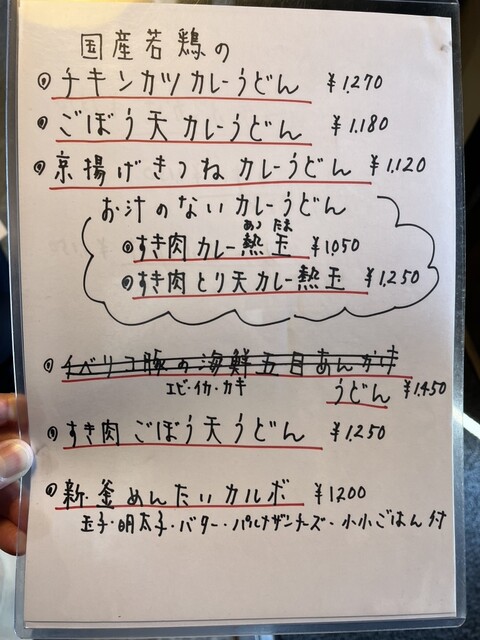 国産若鶏の
チキンカツカレーうどん ¥1,270
ごぼう天カレーうどん ¥1,180
京揚げきつねカレーうどん ¥1,120
お汁のないカレーうどん
あつ たま
すき肉カレー熱玉 ¥1,050
すき肉とり天カレー熱玉 ¥1,250
イベリコ豚の海鮮五目あんかけ
エビ・イカ・カキ うどん ¥1,450
すき肉ごぼう天うどん ¥1,250
新・釜めんたいカルボ ¥1200
玉子・明太子・バター・パルメザンチーズ・小小ごはん付